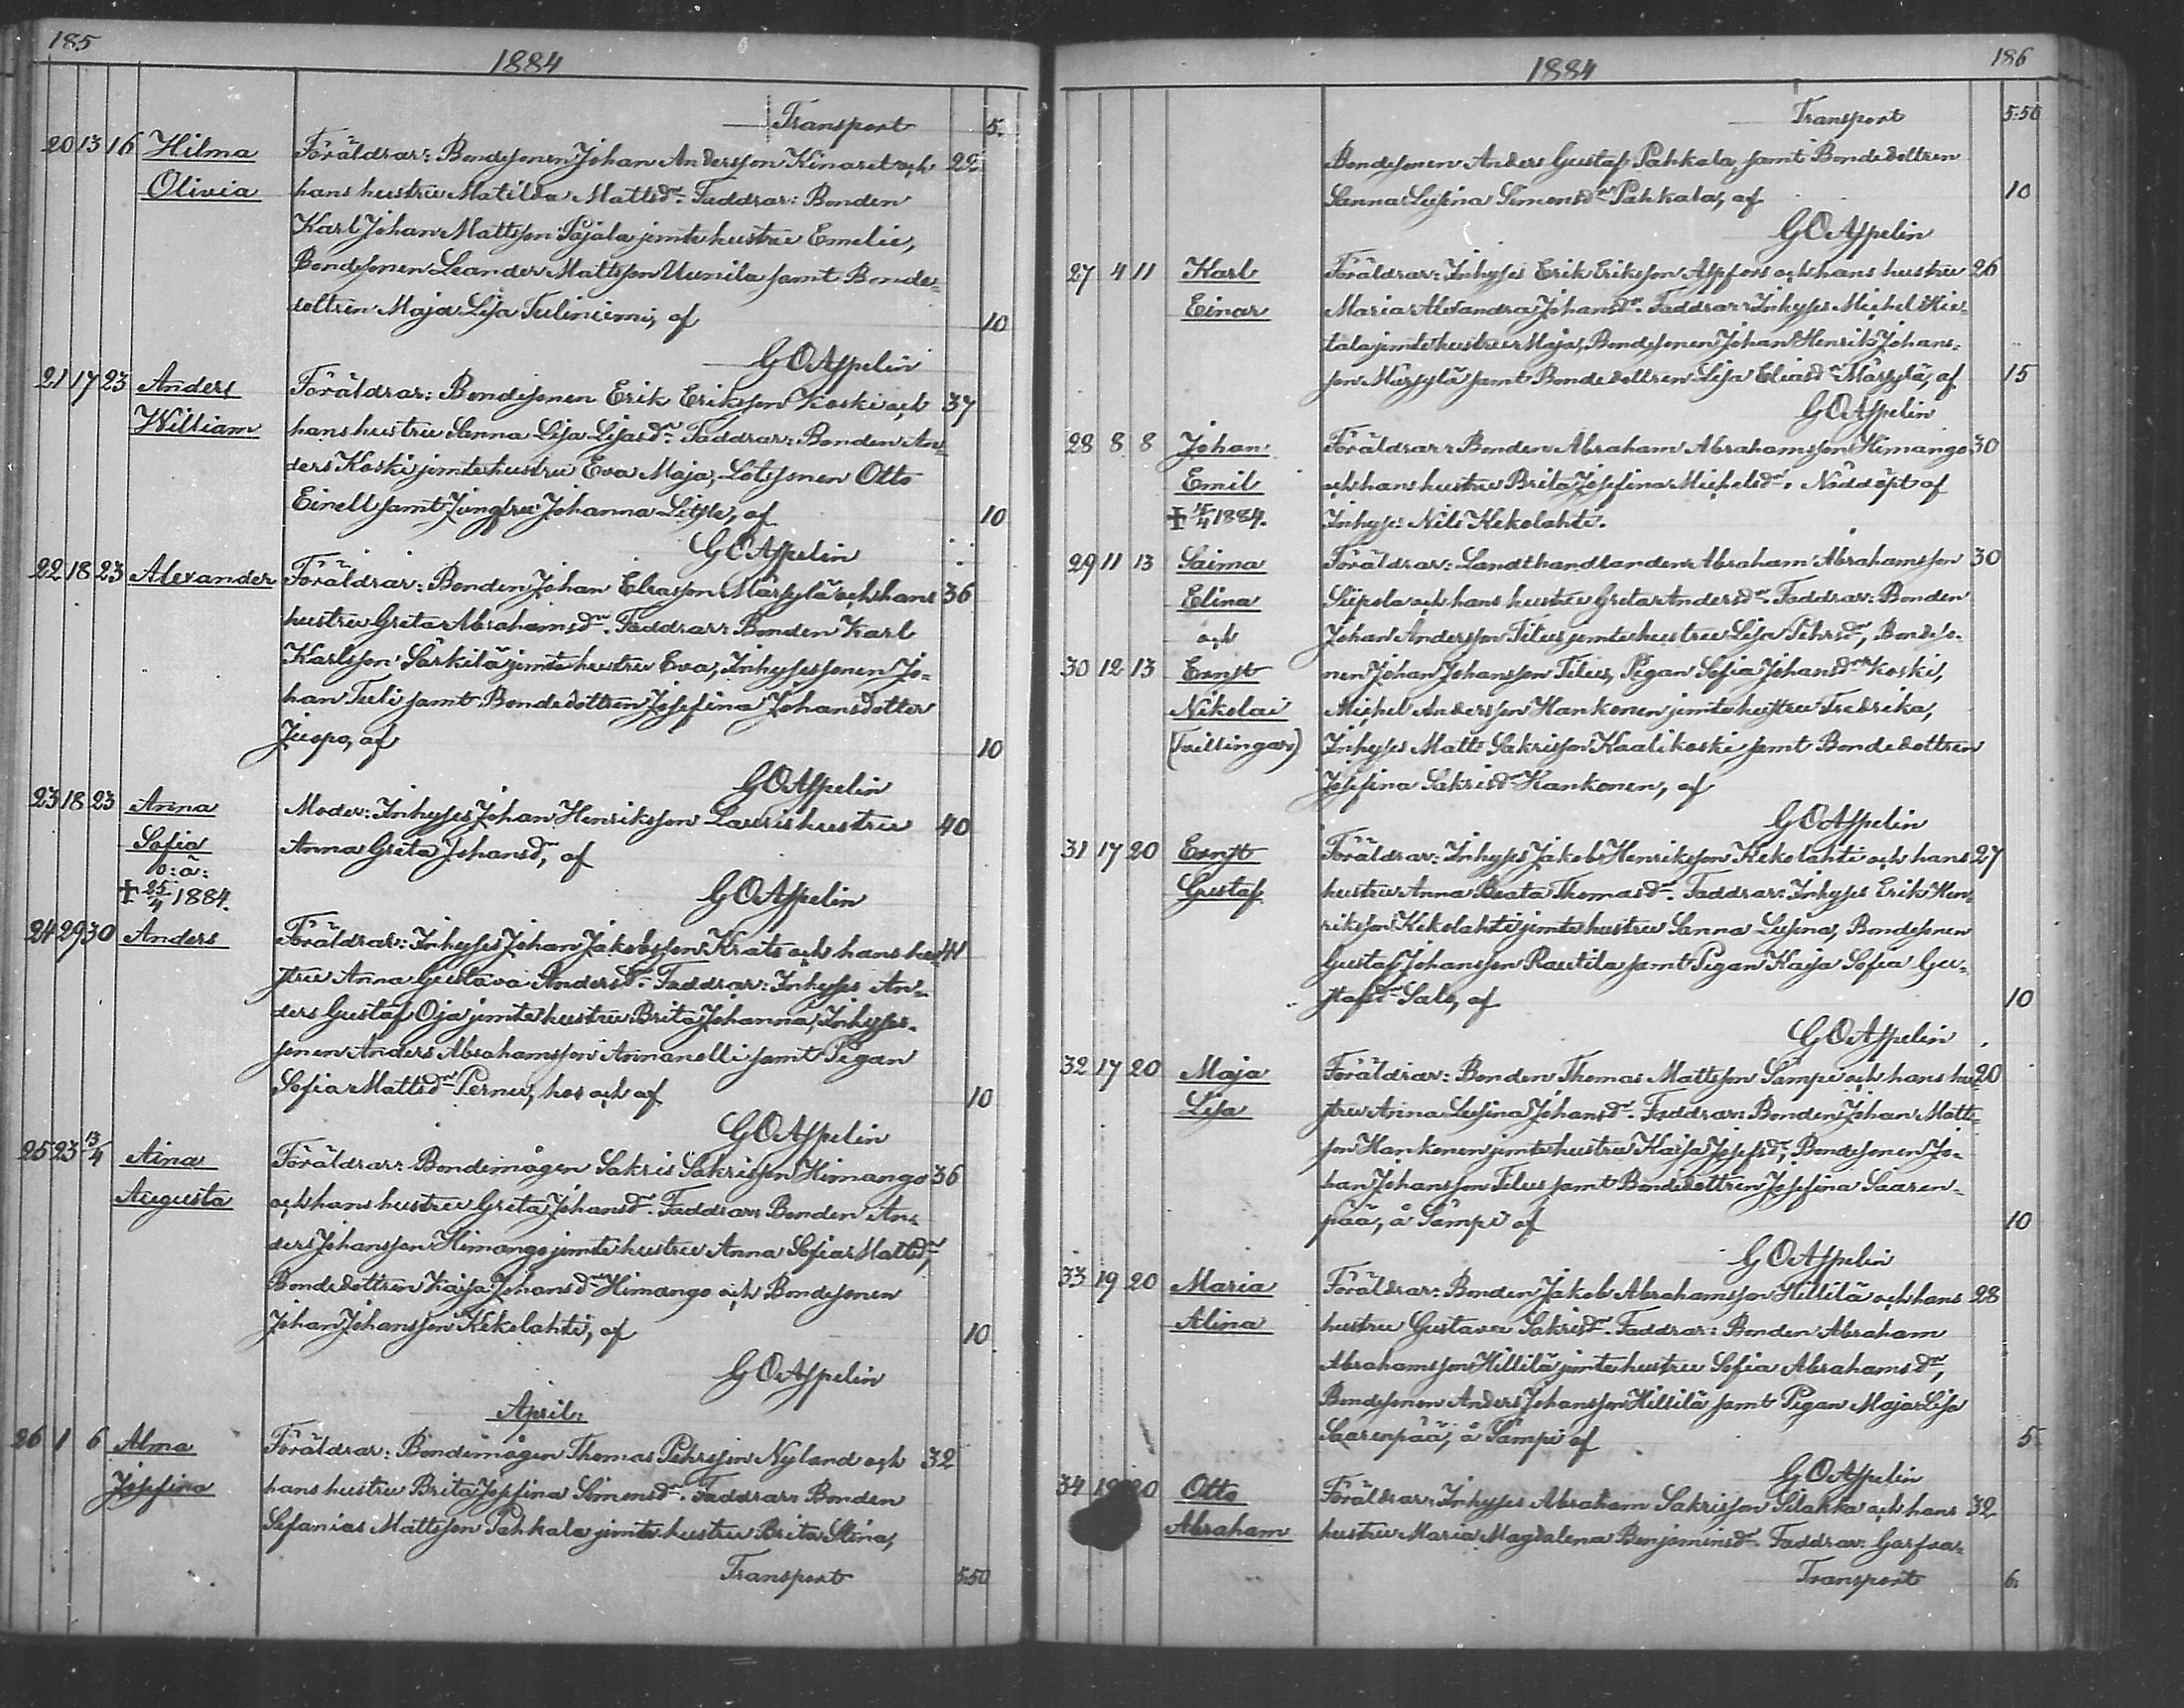 185
1884
Transport 5.
20 13 16 Hilma Föräldrar: Bondesonen Johan Andersson Kinaret och 22
Olivia hans hustru Matilda Mattsdr. Faddrar: Bonden
Karl Johan Mattsson Pajala jemte hustru Emelie,
Bondesonen Leander Mattsson Uunila samt Bonde-
dottren Maja Lisa Tuliniemi, af 10
G O Aspelin
21 17 23 Anders Föräldrar: Bondesonen Erik Eriksson Koski och 37
William hans hustru Sanna Lisa Lisasdr. Faddrar: Bonden An-
ders Koski jemte hustru Eva Maja, Lotssonen Otto
Einell samt Jungfru Johanna, af 10
G O Aspelin
22 18 23 Alexander Föräldrar: Bonden Johan Eliasson Märsylä och hans 36
hustru Greta Abrahamsdr. Faddrar: Bonden Karl
Karlsson Särkilä jemte hustru Eva, Inhysessonen Jo-
han Tuli samt Bondedottren Josefina Johansdotter
Juopo, af 10
G O Aspelin
23 18 23 Anna Moder: Inhyses Johan Henriksson Lauris hustru 40
Sofia Anna Greta Johansd., af
o: ä:
+ 25/4 1884. G O Aspelin
24 29 30 Anders Föräldrar: Inhyses Johan Jakobsson Krats och hans hu- 41
stru Anna Gustava Andersdr. Faddrar: Inhyses An-
ders Gustaf Oja jemte hustru Brita Johanna, Inhyses-
sonen Anders Abrahamsson Annanolli samt Pigan
Sofia Mattsdr Pernu, hos och af 10
G O Aspelin
25 23 13/4 Aina Föräldrar: Bondemågen Sakris Sakrisson Himango 36
Augusta och hans hustru Greta Johansdr. Faddrar: Bonden An-
ders Johansson Himango jemte hustru Anna Sofia Mattsdr,
Bondedottren Kaisa Johansdr Himango och Bondesonen
Johan Johansson Kekolahti, af 10
G O Aspelin
April:
26 1 6 Alma Föräldrar: Bondemågen Thomas Pehrsson Nyland och 32
Josefina hans hustru Brita Josefina Simonsdr. Faddrar: Bonden
Sefanias Mattsson Pahkala jemte hustru Brita Stina,
Transport 5.50
186
1884
Transport 5.50
Bondesonen Anders Gustaf Pahkala, samt Bondedottren
Sanna Lusina Simonsdr Pahkala, af 10
G O Aspelin
27 4 11 Karl Föräldrar: Inhyses Erik Eriksson Aspfors och hans hustru 26
Einar Maria Alexandra Johansdr. Faddrar: Inhyses Michel Hie-
tala jemte hustru Maja, Bondesonen Johan Henrik Johans-
son Märsylä samt Bondedottren Lisa Eliasdr Märsylä, af 15
G O Aspelin
28 8 8 Johan Föräldrar: Bonden Abraham Abrahamsson Himango 30
Emil och hans hustru Brita Josefina Michelsdr. Nöddöpt af
+ 1884. Inhyses Nils Kekolahti.
29 11 13 Saima Föräldrar: Landthandlanden Abraham Abrahamsson 30
Elina Siipola och hans hustru Greta Andersdr. Faddrar: Bonden
och Johan Andersson Tilus jemte hustru Lisa Pehrsdr, Bondeso-
30 12 13 Ernst nen Johan Johansson Tilus, Pigan Sofia Johansdr Koski,
Nikolai Michel Andersson Hankonen jemte hustru Fredrika,
(Tvillingar) Inhyses Matts Sakrisson Kaalikoski samt Bondedottren
Josefina Sakrisdr Hankonen, af
G O Aspelin
31 17 20 Ernst Föräldrar: Inhyses Jakob Henriksson Kekolahti och hans 27
Gustaf hustru Anna Beata Thomasdr. Faddrar: Inhyses Erik Hen-
riksson Kekolahti jemte hustru Sanna Lusina, Bondesonen
Gustaf Johansson Rautila samt Pigan Kaisa Sofia Gu-
stafsdr Salo, af 10
G O Aspelin
32 17 20 Maja Föräldrar: Bonden Thomas Mattsson Sämpi och hans hu- 20
Lisa stru Anna Lusina Johansdr. Faddrar: Bonden Johan Matts-
son Hankonen jemte hustru Kaisa Josefsdr, Bondesonen Jo-
han Johansson Tilus samt Bondedottren Josefina Saaren-
pää, å Sämpi af 10
G O Aspelin
33 19 20 Maria Föräldrar: Bonden Jakob Abrahamsson Hillilä och hans 28
Alina hustru Gustava Sakrisdr. Faddrar: Bonden Abraham
Abrahamsson Hillilä jemte hustru Sofia Abrahamsdr,
Bondesonen Anders Johansson Hillilä samt Pigan Maja Lisa
Saarenpää, å Sämpi af 5
G O Aspelin
34 19 20 Otto Föräldrar: Inhyses Abraham Sakrisson Silakka och hans 32
Abraham hustru Maria Magdalena Benjaminsdr. Faddrar: Garfva-
Transport 6.